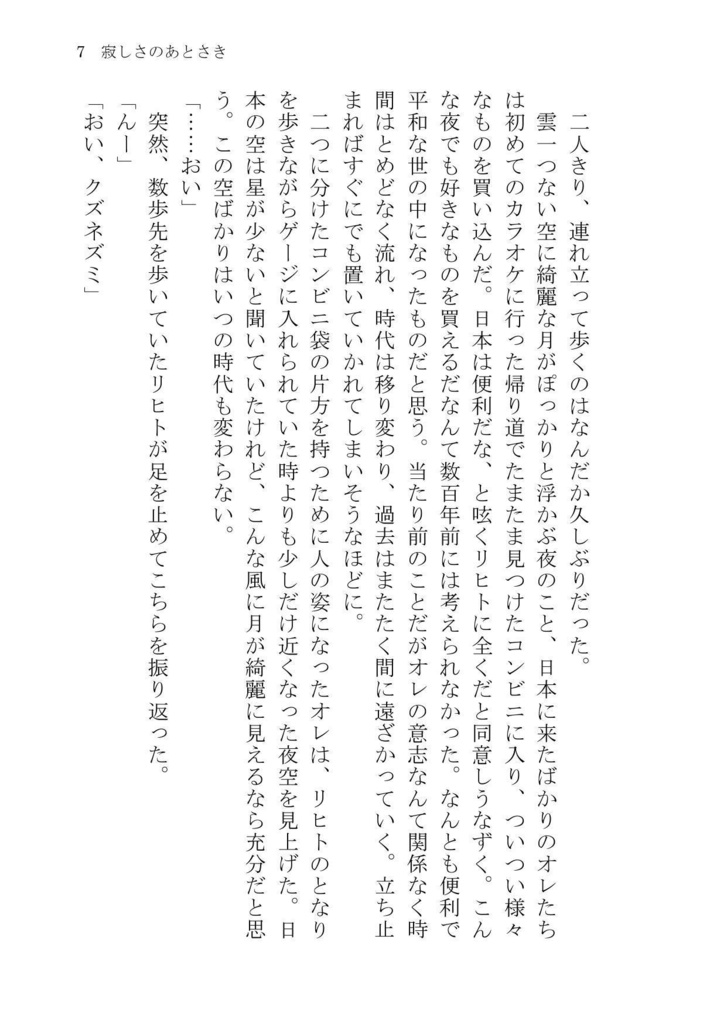 7 寂しさのあとさき
二人きり、連れ立って歩くのはなんだか久しぶりだった。
雲一つない空に綺麗な月がぽっかりと浮かぶ夜のこと、日本に来たばかりのオレたち
は初めてのカラオケに行った帰り道でたまたま見つけたコンビニに入り、ついつい様々
なものを買い込んだ。日本は便利だな、と呟くリヒトに全くだと同意しうなずく。こん
な夜でも好きなものを買えるだなんて数百年前には考えられなかった。なんとも便利で
平和な世の中になったものだと思う。当たり前のことだがオレの意志なんて関係なく時
間はとめどなく流れ、時代は移り変わり、過去はまたたく間に遠ざかっていく。立ち止
まればすぐにでも置いていかれてしまいそうなほどに。
二つに分けたコンビニ袋の片方を持つために人の姿になったオレは、リヒトのとなり
を歩きながらゲージに入れられていた時よりも少しだけ近くなった夜空を見上げた。日
本の空は星が少ないと聞いていたけれど、こんな風に月が綺麗に見えるなら充分だと思
う。この空ばかりはいつの時代も変わらない。
「……おい」
突然、数歩先を歩いていたリヒトが足を止めてこちらを振り返った。
「んー」
「おい、クズネズミ」